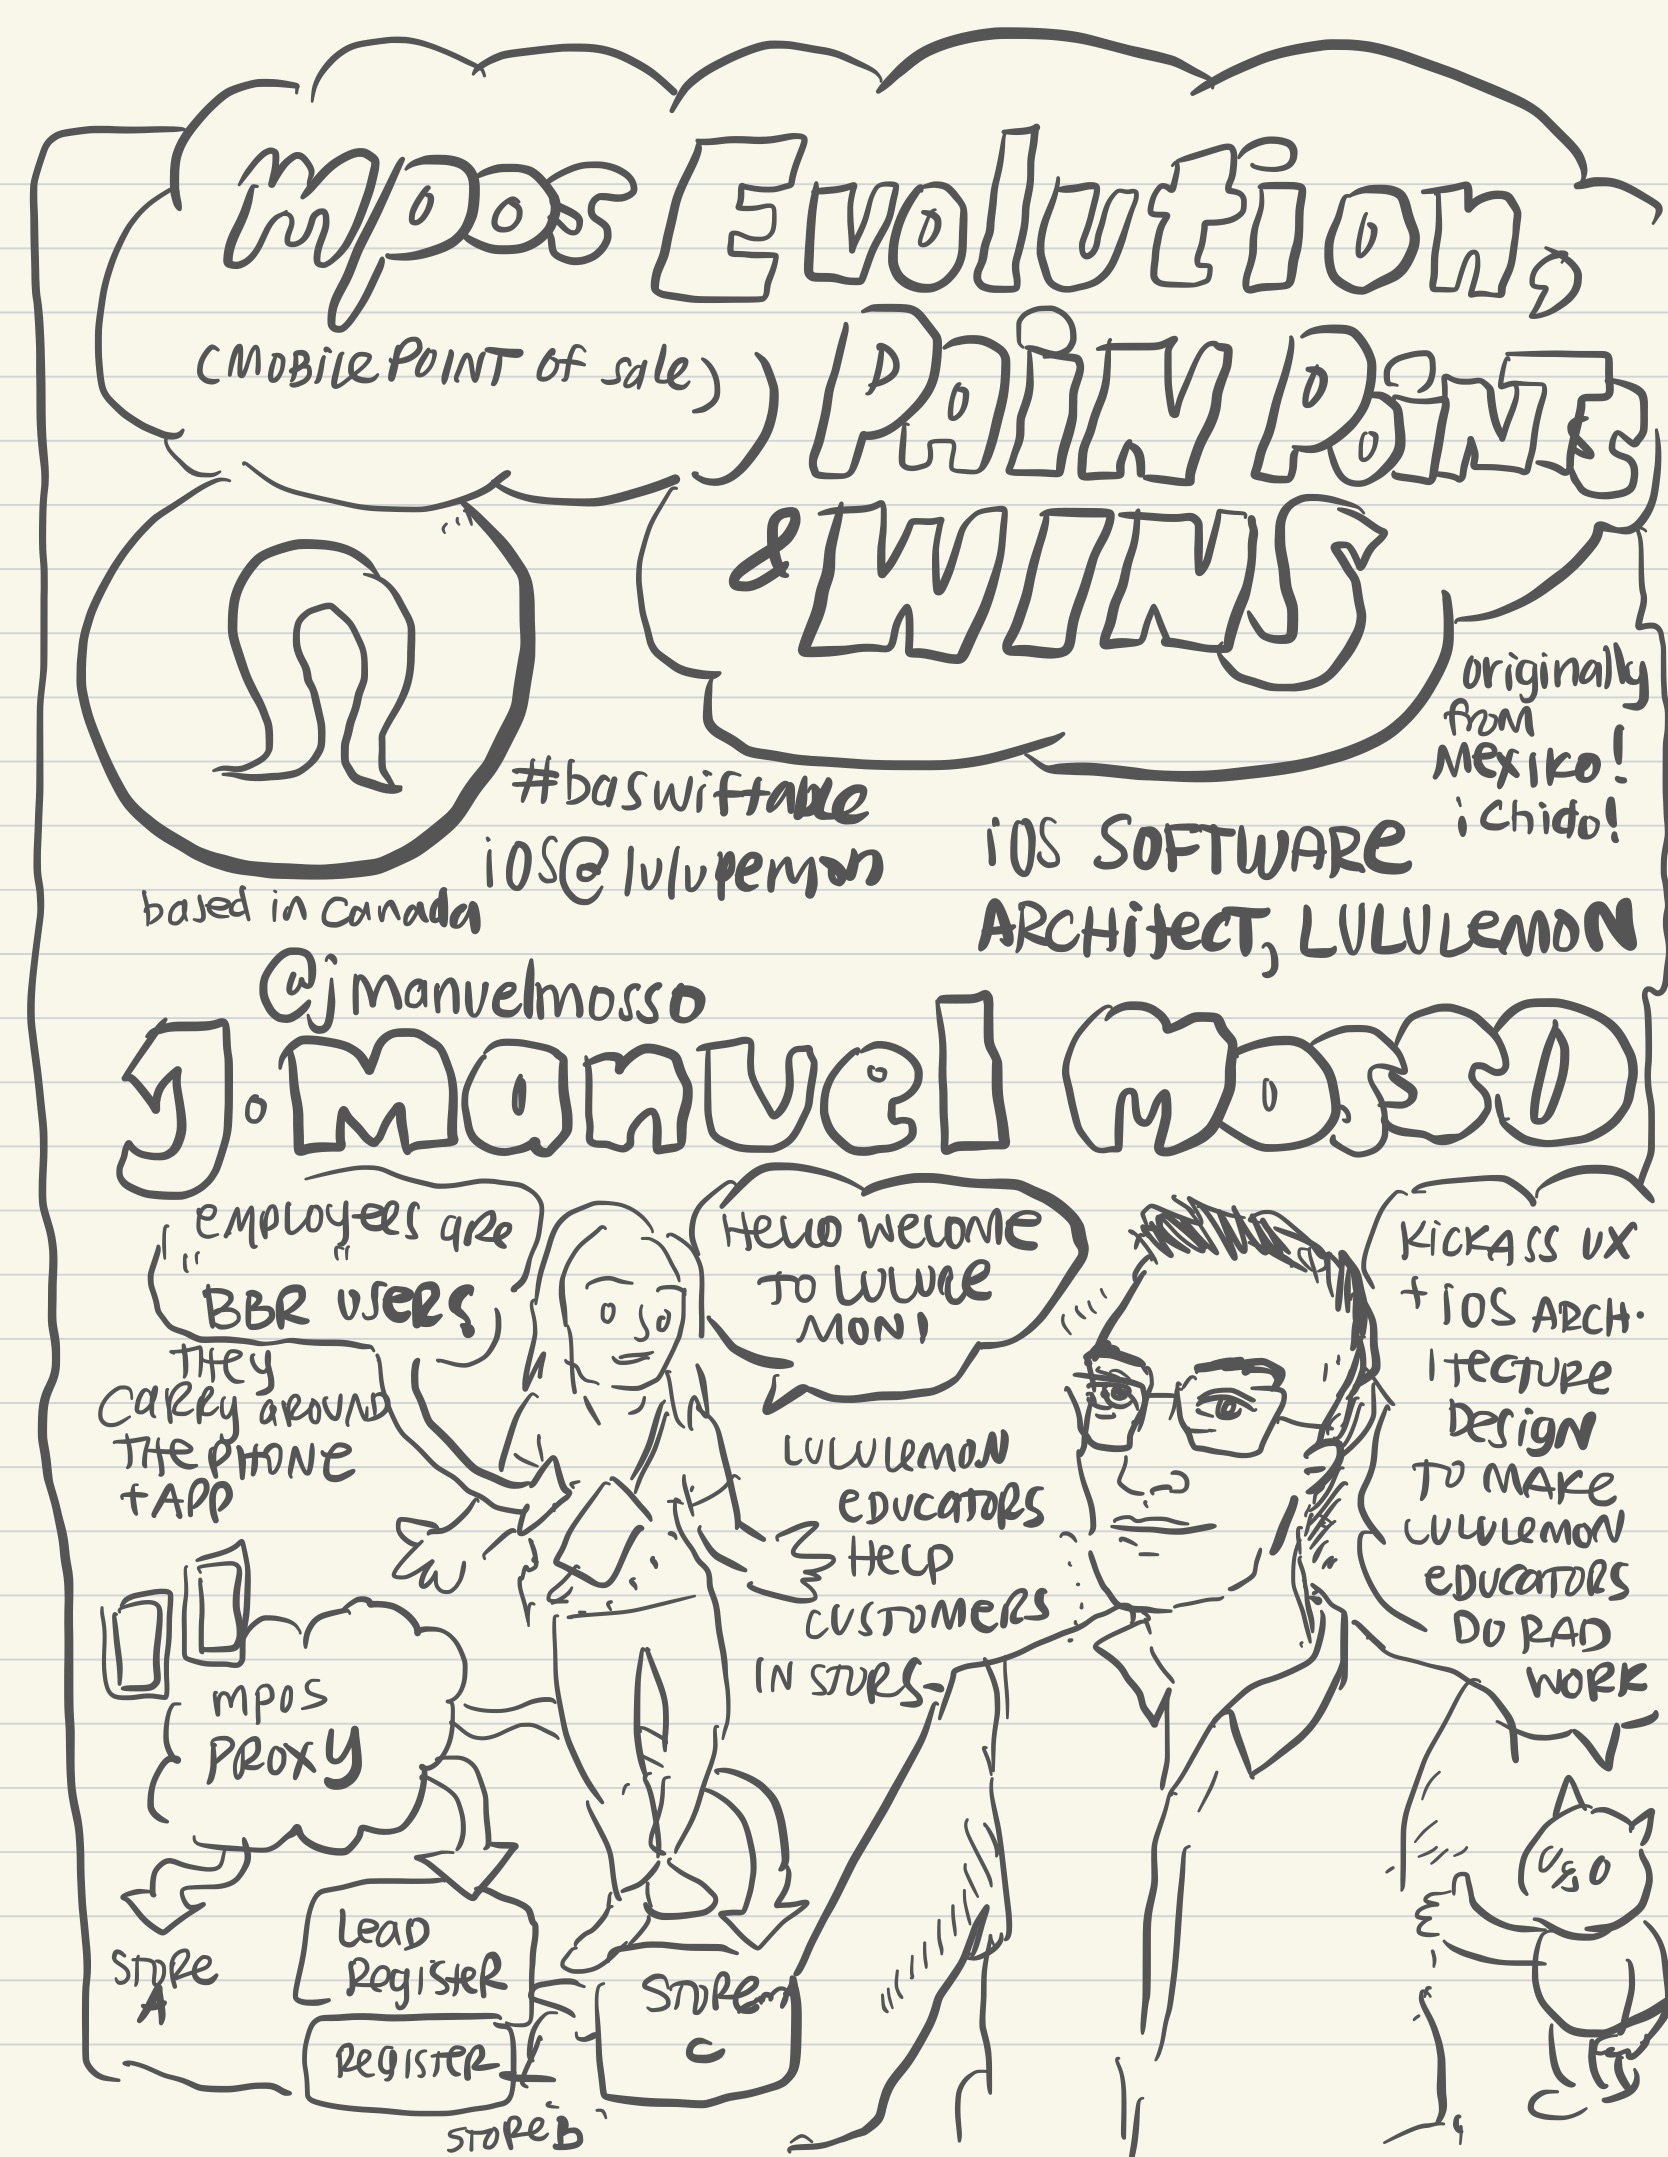 mpos Evolution,
(MOBile POINT of sale)
PAiN PoiNTs
& WINS
originally
from
Mexiko!
¡Chido!
#baswiftable
iOS@lululemon
iOS SOFTWARE
ARCHitect, LULULemoN
based in Canada
@jmanuelmosso
J. Manuel Mosso
employees are
BBR users
THey
CARRy AROUND
THE PHONE
+ APP
Hello Welcome
TO LULULe
MON!
LULULemon
eDUCATORS
Help
CUSTOMERS
IN STORS-
KiCKASS UX
+ iOS ARCH.
ITeCTURe
DesigN
TO MAKe
LULULemoN
eDUCATORS
DO RAD
WORK
mpos
PROXY
STORe
A
Lead
RegisteR
RegisteR
STORe B
STORe
C